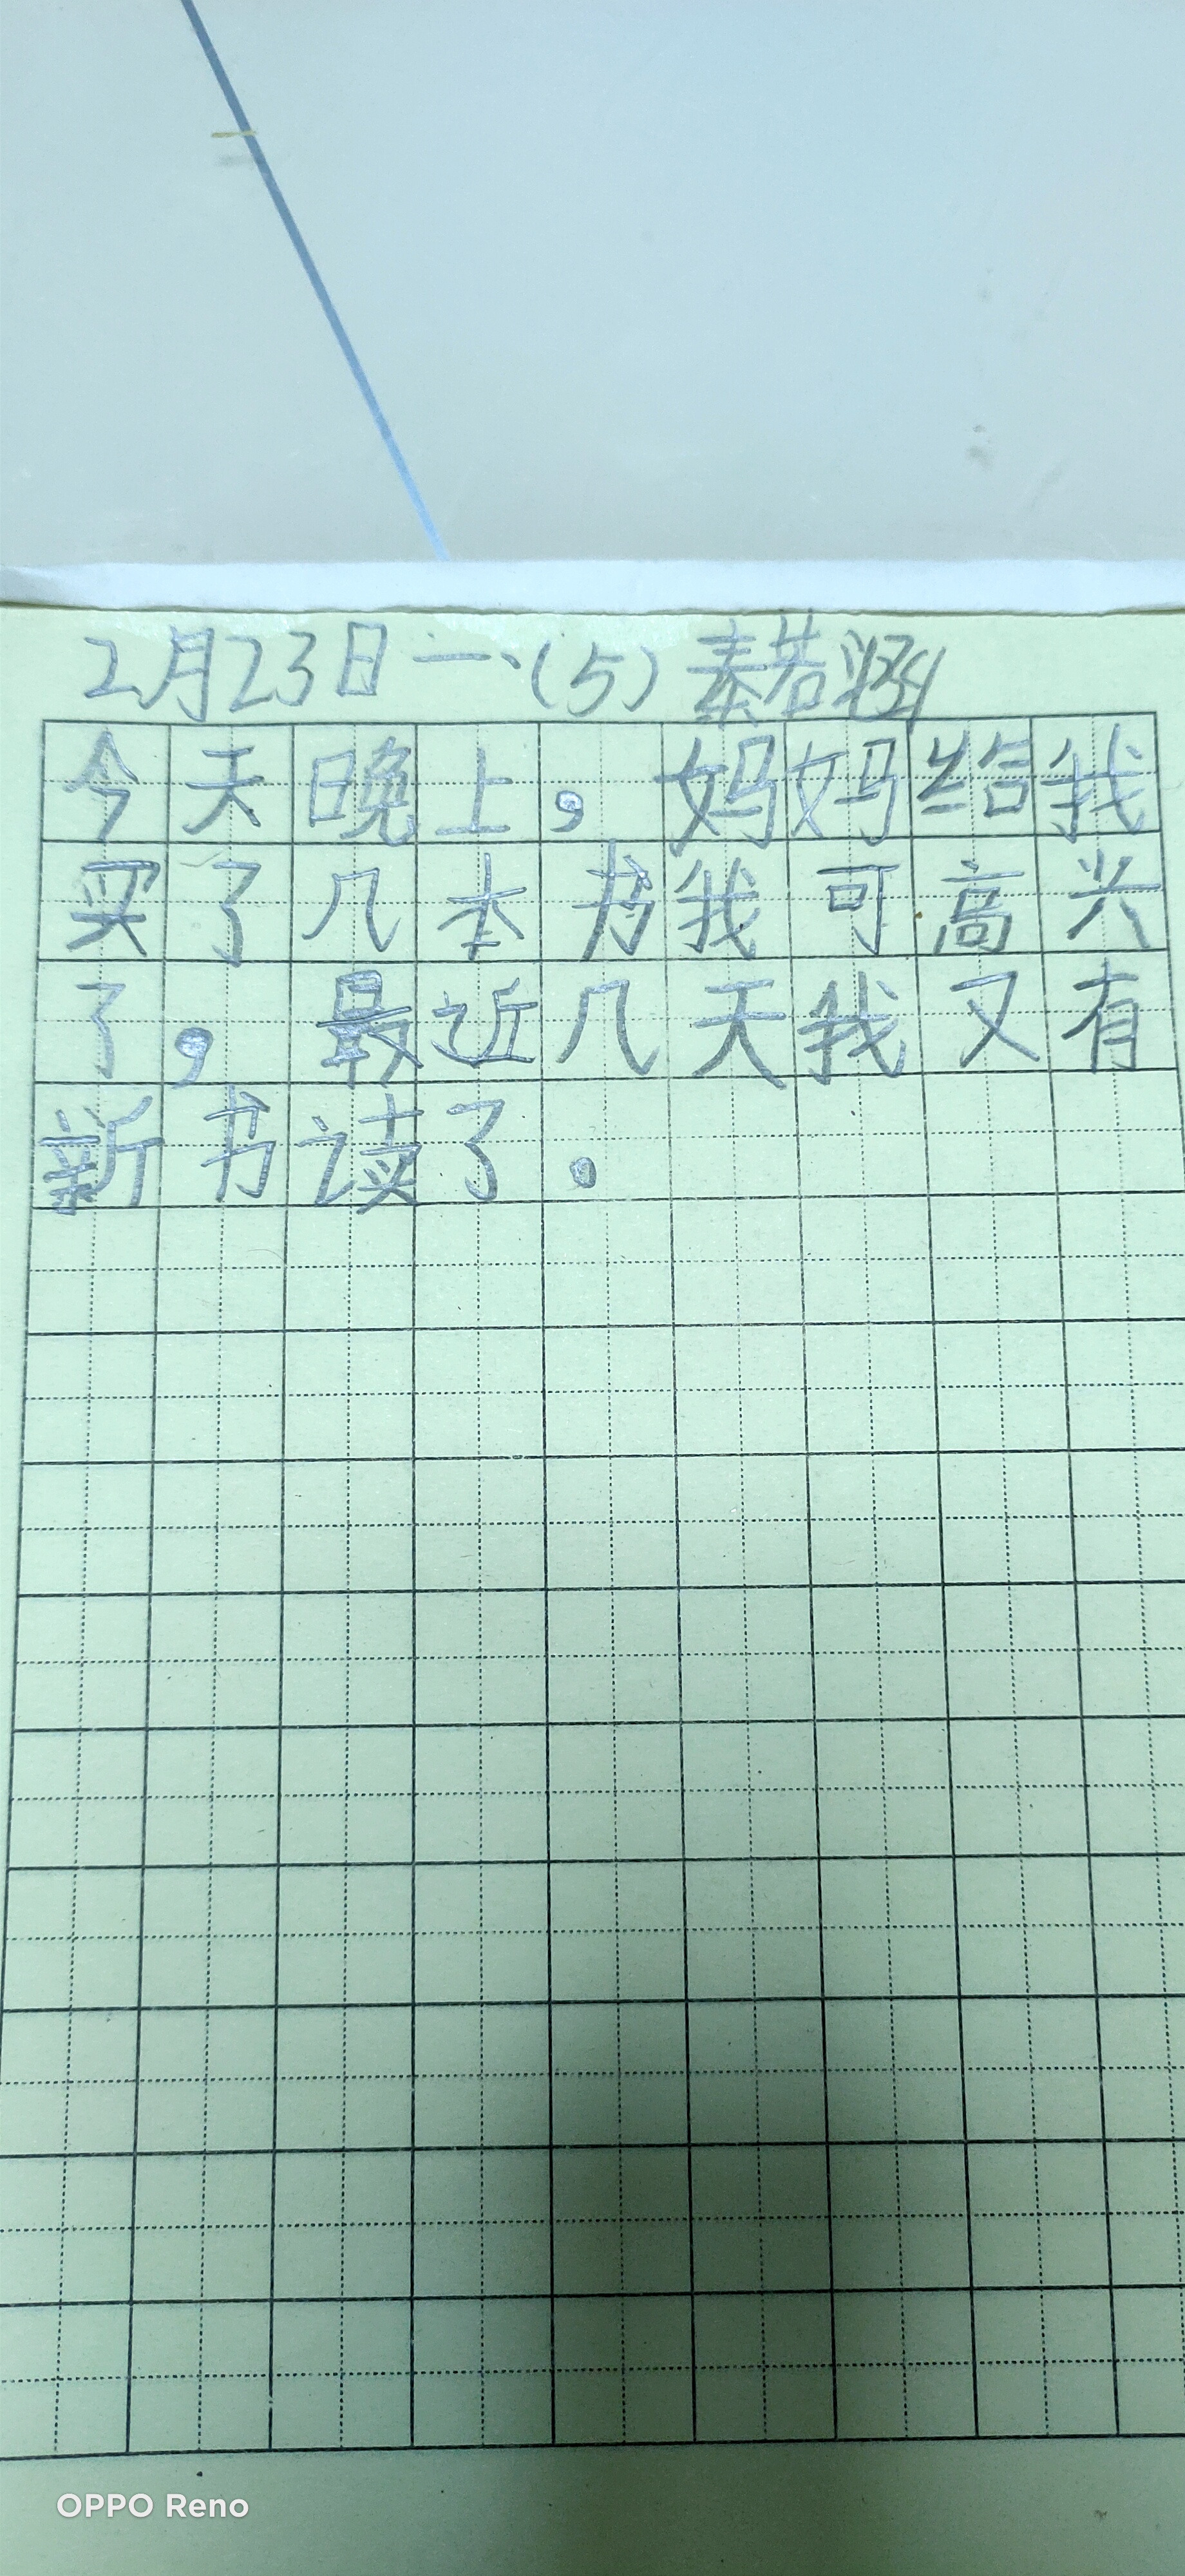 2月23日一、(5)秦若涵
今天晚上，妈妈给我
买了几本书我可高兴
了，最近几天我又有
新书读了.
OPPO Reno